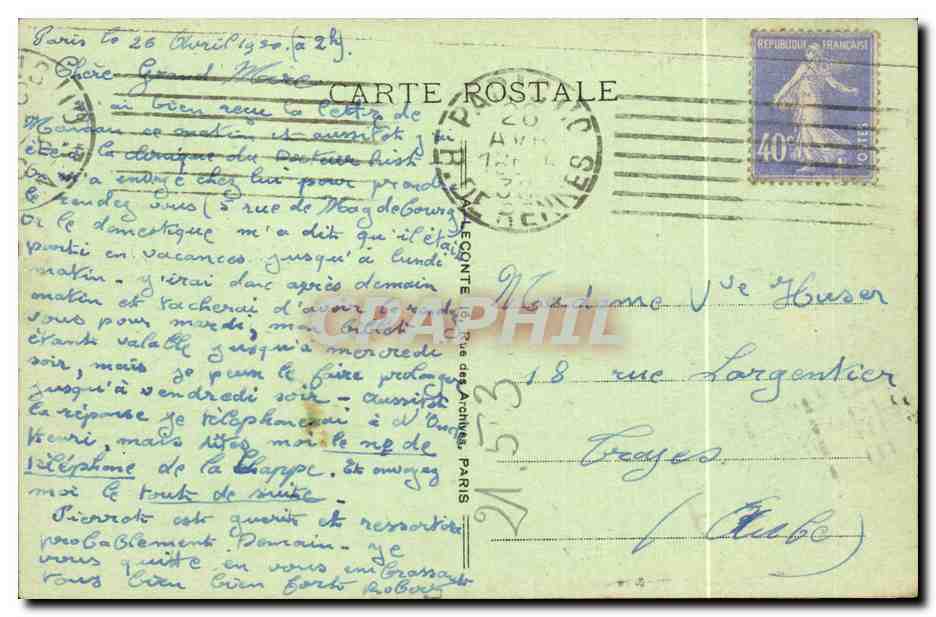 Paris le 26 Avril 1930 (à 2h).
Chère Grand Mère
CARTE POSTALE
ai bien reçu la lettre de
Maman ce matin et aussitôt j'ai
été à la clinique du Docteur
m'a envoyé chez lui pour prendre
le rendez vous (5 rue de Magdebourg)
Or le domestique m'a dit qu'il était
parti en vacances jusqu'à lundi
matin - j'irai donc après demain
matin et tacherai d'avoir
vous pour mardi, mon billet
étant valable jusqu'à mercredi
soir, mais je peux le faire prolonger
jusqu'à vendredi soir - Aussitôt
la réponse je téléphonerai à
Henri, mais dites moi le no de
téléphone de la Chappe. Et envoyez
moi le tout de suite -
Pierrot est guéri et ressortira
probablement Demain - je
vous quitte en vous embrassant
tous bien bien fort Robert
PARIS
26
AVR
R. DE RENNES
REPUBLIQUE FRANÇAISE
40c
POSTES
A. LECONTE, Rue des Archives, PARIS
21.553
Madame Vve Huser
18 rue Largentier
Troyes
(Aube)
CPAPHIL